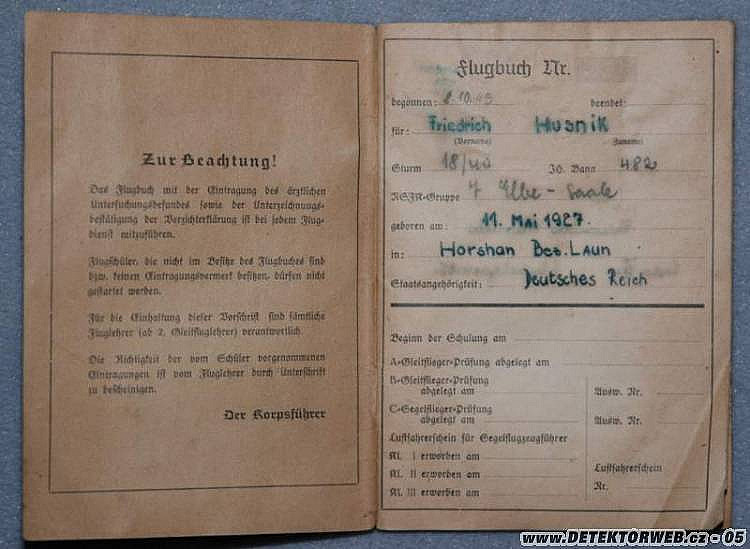 Zur Beachtung!
Das Flugbuch mit der Eintragung des ärztlichen
Untersuchungsbefundes sowie der Unterzeichnungs-
bestätigung der Verzichterklärung ist bei jedem Flug-
dienst mitzuführen.
Flugschüler, die nicht im Besitze des Flugbuches sind
bzw. keinen Eintragungsvermerk besitzen, dürfen nicht
gestartet werden.
Für die Einhaltung dieser Vorschrift sind sämtliche
Fluglehrer (ab 2. Gleitfluglehrer) verantwortlich.
Die Richtigkeit der vom Schüler vorgenommenen
Eintragungen ist vom Fluglehrer durch Unterschrift
zu bescheinigen.
Der Korpsführer
Flugbuch Nr.
begonnen: 8.10.43 beendet:
für: Friedrich Husnik
(Vorname) (Zuname)
Sturm 18/40 JG. Bann 482
NSFK-Gruppe 7 Elbe-Saale
geboren am: 11. Mai 1927.
in: Horshan Bez. Laun
Staatsangehörigkeit: Deutsches Reich
Beginn der Schulung am
A-Gleitflieger-Prüfung abgelegt am
B-Gleitflieger-Prüfung
abgelegt am Ausw. Nr.
C-Segelflieger-Prüfung
abgelegt am Ausw. Nr.
Luftfahrerschein für Segelflugzeugführer
Kl. I erworben am
Kl. II erworben am Luftfahrerschein
Kl. III erworben am Nr.
www.DETEKTORWEB.cz - 05